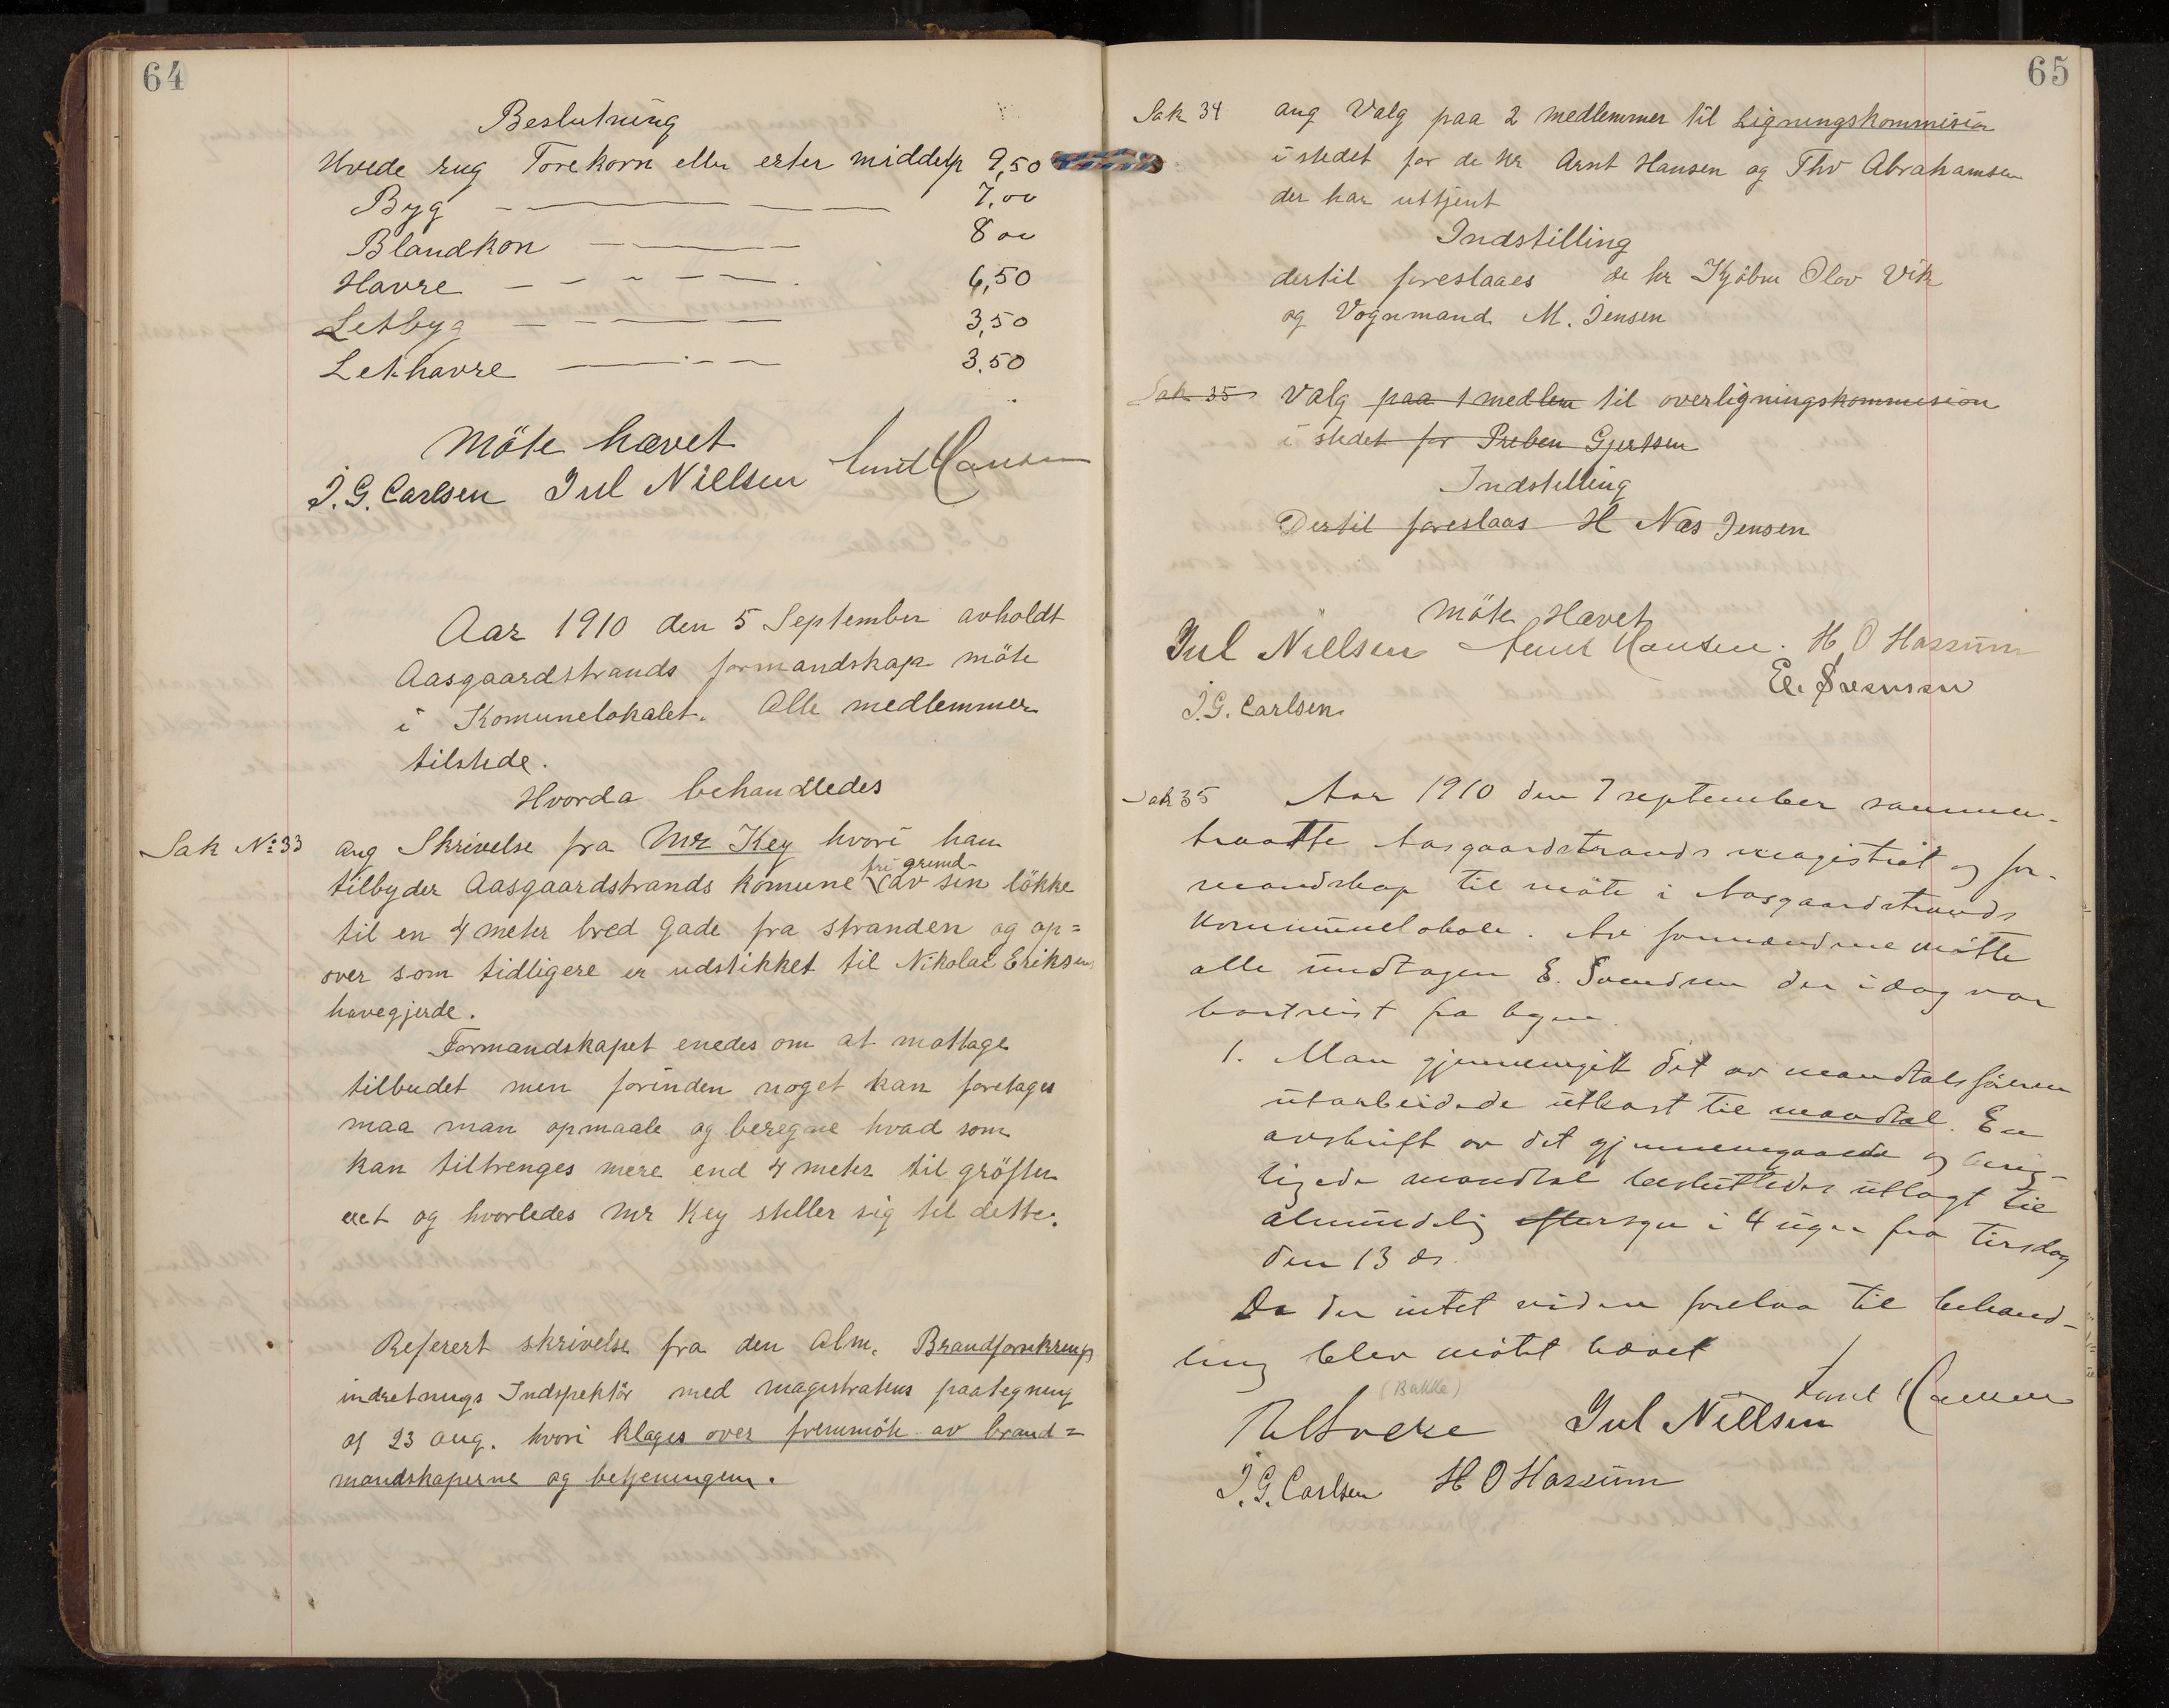 64
Beslutning
Hvede rug Torekorn eller erter middelp 9,50
Byg 7,00
Blandkon 8 00
Havre 6,50
Letbyg 3,50
Lethavre 3.50
Möte hævet
J. G. Carlsen Jul Nillsen Emil Hansen
Aar 1910 den 5 September avholdt
Aasgaardstrands formandskap möte
i Komunelokalet. Alle medlemmer
tilstede.
Hvorda behandledes
Sak No 33 ang Skrivelse fra Mr Key hvori han
fri grund
tilbyder Aasgaardstrands komune av sin lökke
til en 4 meter bred Gade fra stranden og op=
over som tidligere er udstikket til Nikolai Eriksens
havegjerde.
Formandskapet enedes om at mottage
tilbudet men forinden noget kan foretages
maa man opmaale og beregne hvad som
kan tiltrenges mere end 4 meter til gröfter
og hvorledes Mr Key stiller sig til dette.
Referert skrivelse fra den Alm. Brandforsikrings
indretnings Indspektör med magistratens paategning
af 23 aug. hvori klages over fremmöte av brand=
mandskaperne og betjeningen.
65
Sak 34 ang Valg paa 2 medlemmer til Ligningskommision
i stedet for de hr Arnt Hansen og Thv Abrahamsen
der har uttjent
Indstilling
dertil foreslaaes de hr Kjöbm Olav Vik
og Vognmand M. Jensen
Sak 35 Valg paa 1 medlem til overligningskommision
i stedet for Preben Gjertsen
Indstilling
Dertil foreslaas H Næs Jensen
Möte Hævet
Jul Nillsen Emil Hansen. H O Hassum
E. Svensen
J. G. Carlsen
Sak 35 Aar 1910 den 7 september sammen-
traatte Aasgaardstrands magistrat og for-
mandskap til möte i Aasgaardstrands
kommunelokale. Av formændene mötte
alle undtagen E. Svendsen der idag var
bortreist fra byen.
1. Man gjennemgik det av mandtalsföreren
utarbeidede utkast til mandtal. En
avskrift av det gjennemgaaede og berig-
tigede mandtal besluttedes utlagt til
almindelig eftersyn i 4 uger fra tirsdag
den 13 ds.
Da der intet videre forelaa til behand-
ling blev mötet hævet
(Bakke)
Jul Nillsen Emil Hansen
J. G. Carlsen H O Hassum